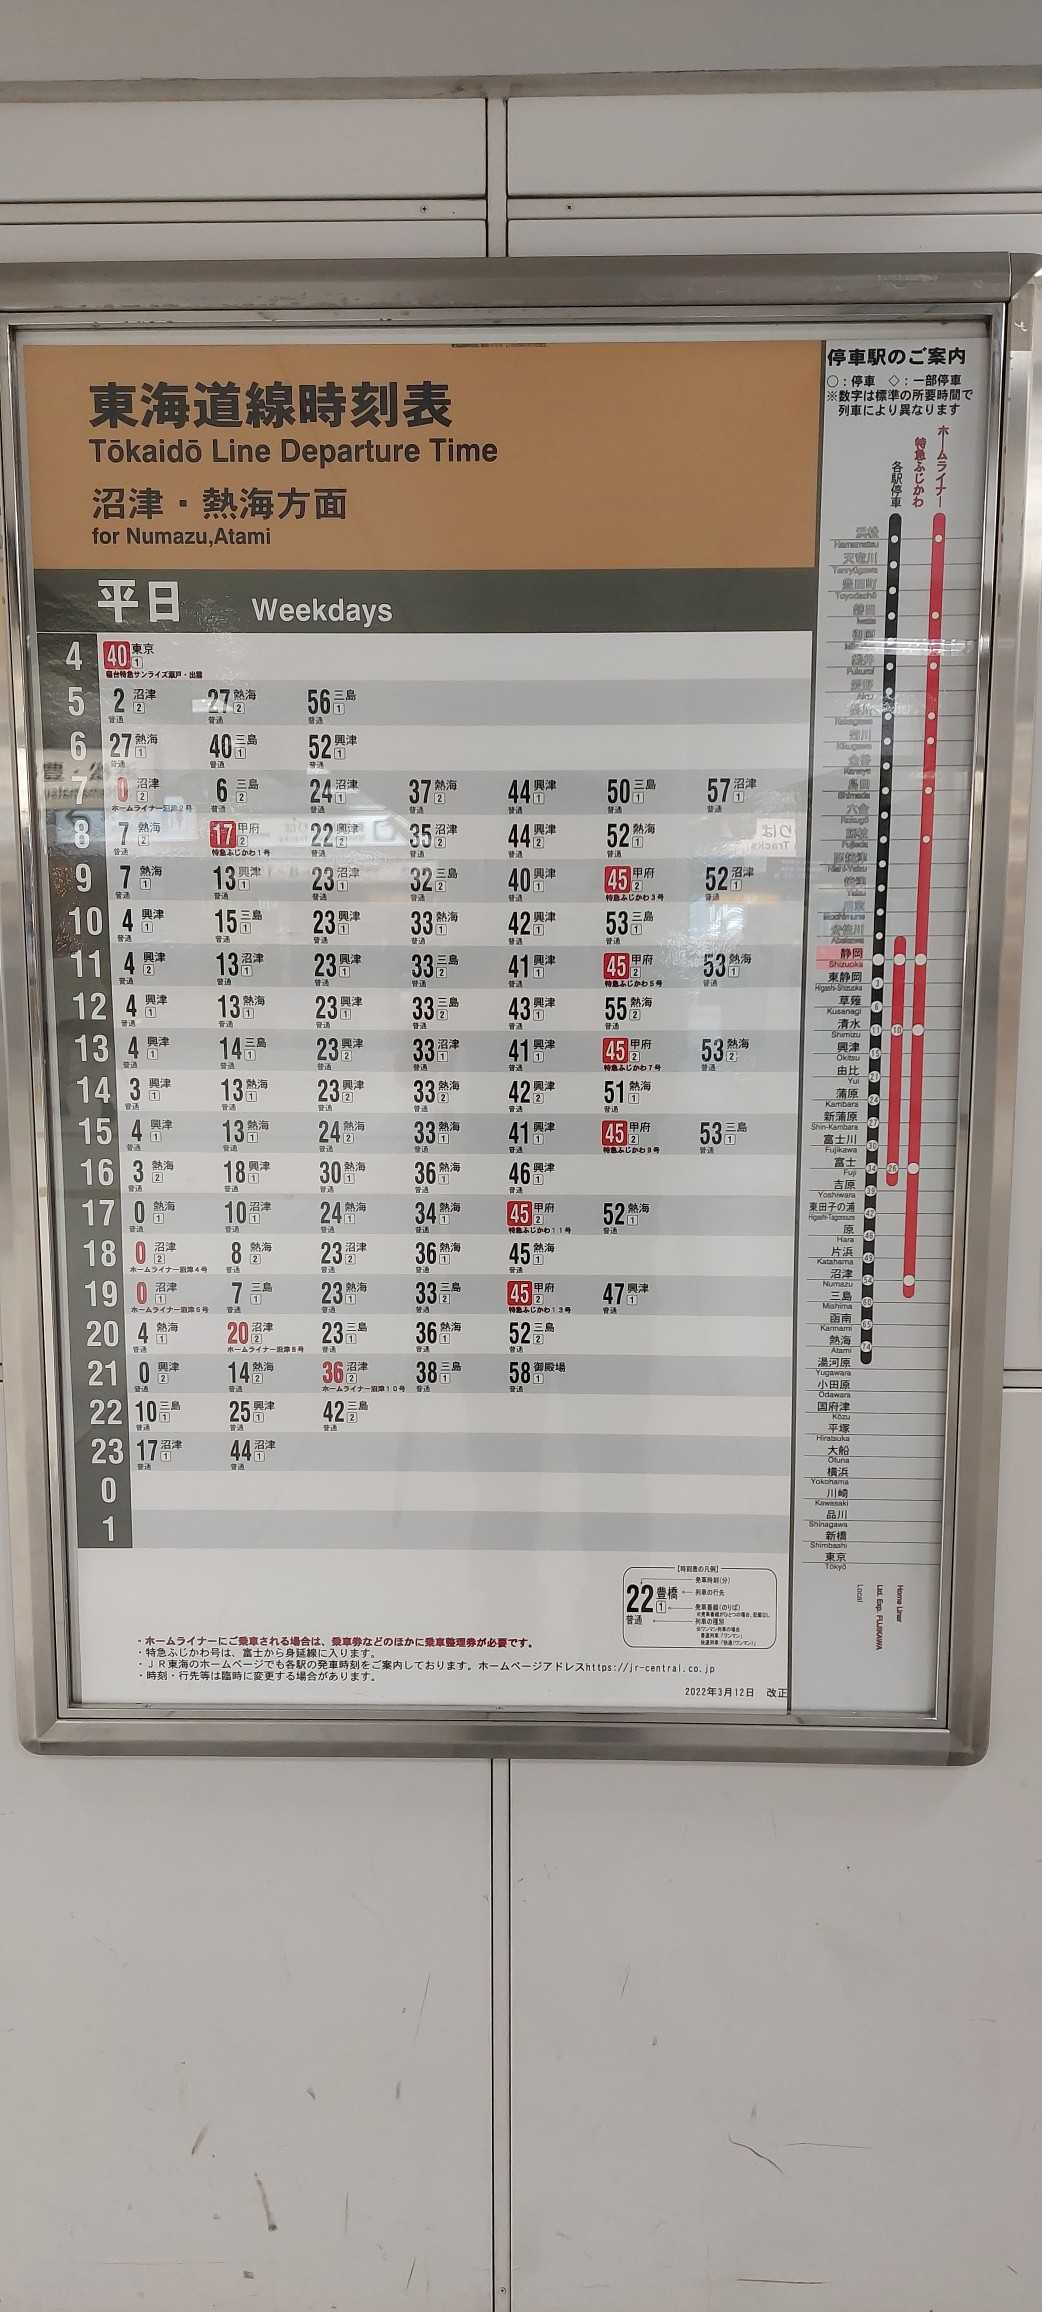 東海道線時刻表
Tōkaidō Line Departure Time
沼津・熱海方面
for Numazu,Atami
平日 Weekdays
4 40 東京 1 寝台特急サンライズ瀬戸・出雲
5 2 沼津 2 普通 27 熱海 2 普通 56 三島 1 普通
6 27 熱海 1 普通 40 三島 1 普通 52 興津 1 普通
7 0 沼津 2 ホームライナー沼津2号 6 三島 2 普通 24 沼津 1 普通 37 熱海 2 普通 44 興津 1 普通 50 三島 1 普通 57 沼津 1 普通
8 7 熱海 2 普通 17 甲府 2 特急ふじかわ1号 22 興津 2 普通 35 沼津 2 普通 44 興津 2 普通 52 熱海 1 普通
9 7 熱海 1 普通 13 興津 1 普通 23 沼津 1 普通 32 三島 2 普通 40 興津 1 普通 45 甲府 2 特急ふじかわ3号 52 沼津 1 普通
10 4 興津 1 普通 15 三島 1 普通 23 興津 1 普通 33 熱海 1 普通 42 興津 1 普通 53 三島 1 普通
11 4 興津 2 普通 13 沼津 1 普通 23 興津 1 普通 33 三島 2 普通 41 興津 1 普通 45 甲府 2 特急ふじかわ5号 53 熱海 1 普通
12 4 興津 1 普通 13 熱海 1 普通 23 興津 1 普通 33 三島 2 普通 43 興津 1 普通 55 熱海 2 普通
13 4 興津 1 普通 14 三島 1 普通 23 興津 2 普通 33 沼津 1 普通 41 興津 1 普通 45 甲府 2 特急ふじかわ7号 53 熱海 2 普通
14 3 興津 1 普通 13 熱海 1 普通 23 興津 2 普通 33 熱海 2 普通 42 興津 2 普通 51 熱海 1 普通
15 4 興津 1 普通 13 熱海 1 普通 24 熱海 2 普通 33 熱海 1 普通 41 興津 1 普通 45 甲府 2 特急ふじかわ9号 53 三島 1 普通
16 3 熱海 2 普通 18 興津 1 普通 30 熱海 1 普通 36 熱海 1 普通 46 興津 1 普通
17 0 熱海 1 普通 10 沼津 1 普通 24 熱海 1 普通 34 熱海 1 普通 45 甲府 2 特急ふじかわ11号 52 熱海 1 普通
18 0 沼津 2 ホームライナー沼津4号 8 熱海 2 普通 23 沼津 2 普通 36 熱海 1 普通 45 熱海 1 普通
19 0 沼津 1 ホームライナー沼津6号 7 三島 1 普通 23 熱海 1 普通 33 三島 2 普通 45 甲府 2 特急ふじかわ13号 47 興津 1 普通
20 4 熱海 1 普通 20 沼津 2 ホームライナー沼津8号 23 三島 1 普通 36 熱海 1 普通 52 三島 2 普通
21 0 興津 2 普通 14 熱海 2 普通 36 沼津 2 ホームライナー沼津10号 38 三島 1 普通 58 御殿場 1 普通
22 10 三島 1 普通 25 興津 1 普通 42 三島 2 普通
23 17 沼津 1 普通 44 沼津 1 普通
0
1
[時刻表の凡例]
22 豊橋 1 普通
発車時刻(分)
列車の行先
発車番線(のりば)
列車の種別
・ホームライナーにご乗車される場合は、乗車券などのほかに乗車整理券が必要です。
・特急ふじかわ号は、富士から身延線に入ります。
・JR東海のホームページでも各駅の発車時刻をご案内しております。ホームページアドレスhttps://jr-central.co.jp
・時刻・行先等は臨時に変更する場合があります。
2022年3月12日 改正
停車駅のご案内
○：停車 ◇：一部停車
※数字は標準の所要時間で
列車により異なります
各駅停車
特急ふじかわ
ホームライナー
浜松 Hamamatsu
天竜川 Tenryūgawa
豊田町 Toyodachō
磐田 Iwata
島田 Shimada
静岡 Shizuoka
東静岡 Higashi-Shizuoka 3
草薙 Kusanagi 6
清水 Shimizu 11 10
興津 Okitsu 15
由比 Yui 21
蒲原 Kambara 24
新蒲原 Shin-Kambara 27
富士川 Fujikawa 30
富士 Fuji 34 26
吉原 Yoshiwara 39
東田子の浦 Higashi-Tagonoura 42
原 Hara 46
片浜 Katahama 49
沼津 Numazu 54
三島 Mishima 60
函南 Kannami 65
熱海 Atami 74
湯河原 Yugawara
小田原 Odawara
国府津 Kōzu
平塚 Hiratsuka
大船 Ōfuna
横浜 Yokohama
川崎 Kawasaki
品川 Shinagawa
新橋 Shimbashi
東京 Tōkyō
Local
Ltd. Exp. FUJIKAWA
Home Liner